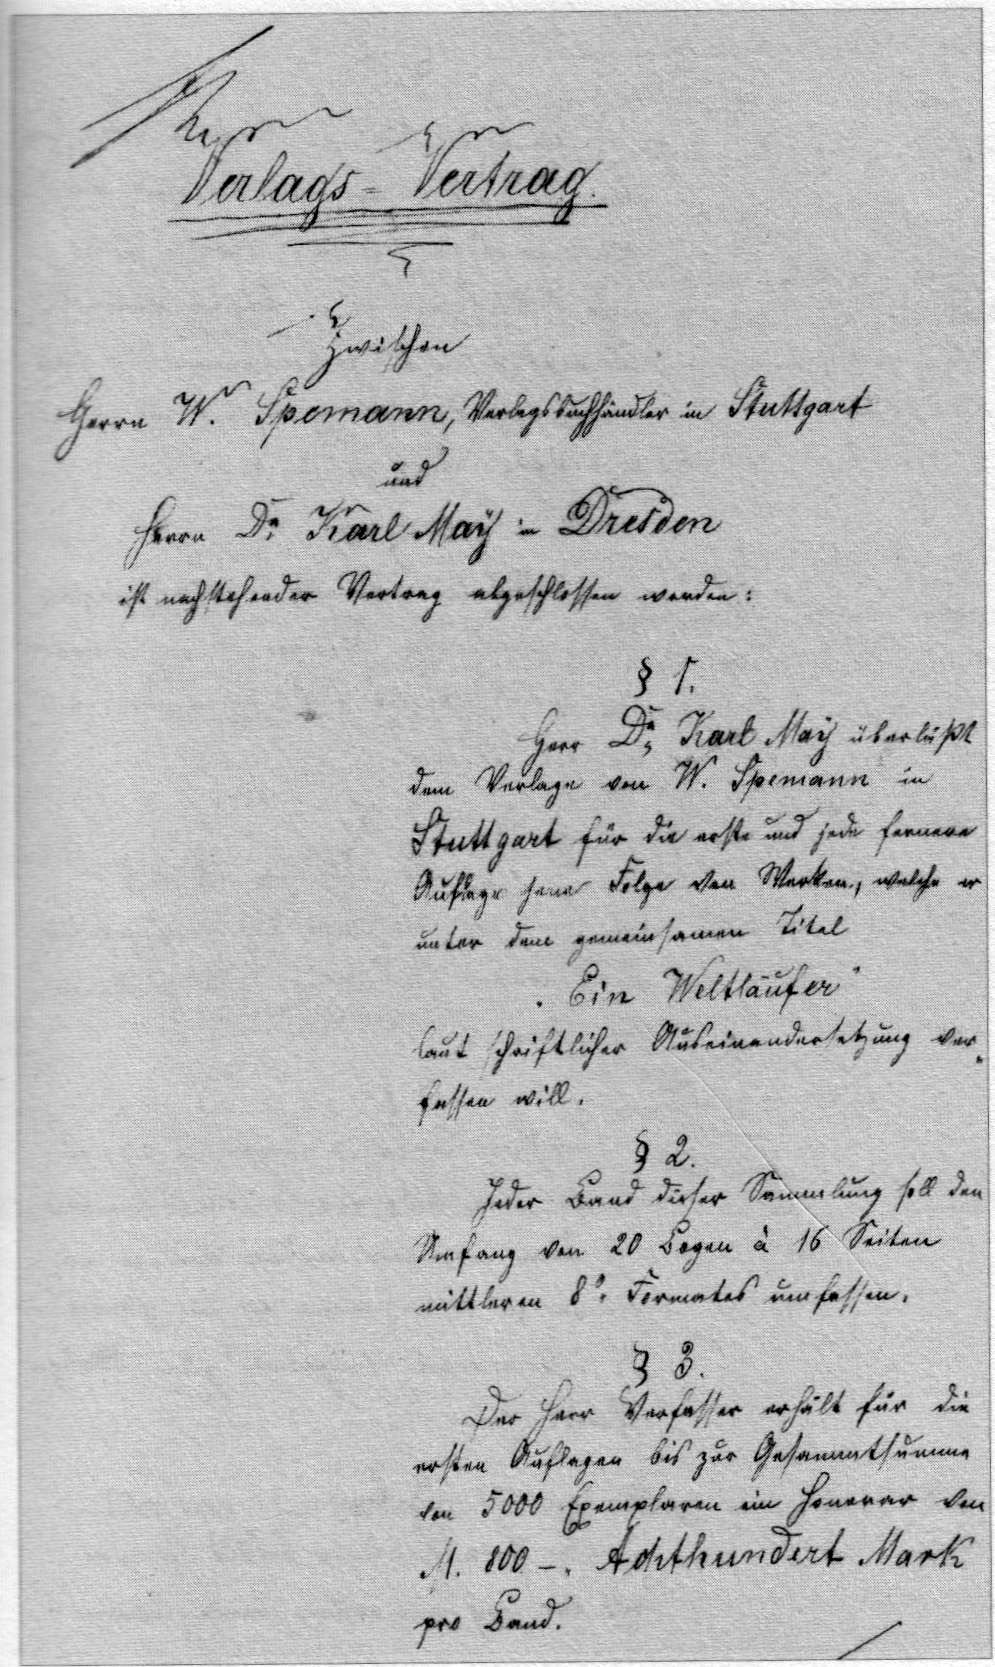 Verlags-Vertrag.
Zwischen
Herrn W. Spemann, Verlagsbuchhändler in Stuttgart
und
Herrn Dr. Karl May in Dresden
ist nachstehender Vertrag abgeschlossen worden:
§ 1.
Herr Dr. Karl May überläßt
dem Verlage von W. Spemann in
Stuttgart für die erste und jede fernere
Auflage jene Folge von Werken, welche er
unter dem gemeinsamen Titel
„Ein Weltläufer"
laut schriftlicher Auseinandersetzung ver-
fassen will.
§ 2.
Jeder Band dieser Sammlung soll den
Umfang von 20 Bogen à 16 Seiten
mittleren 8°. Formates umfassen.
§ 3.
Der Herr Verfasser erhält für die
ersten Auflagen bis zur Gesammtsumme
von 5000 Exemplaren ein Honorar von
M. 800 –. Achthundert Mark
pro Band.